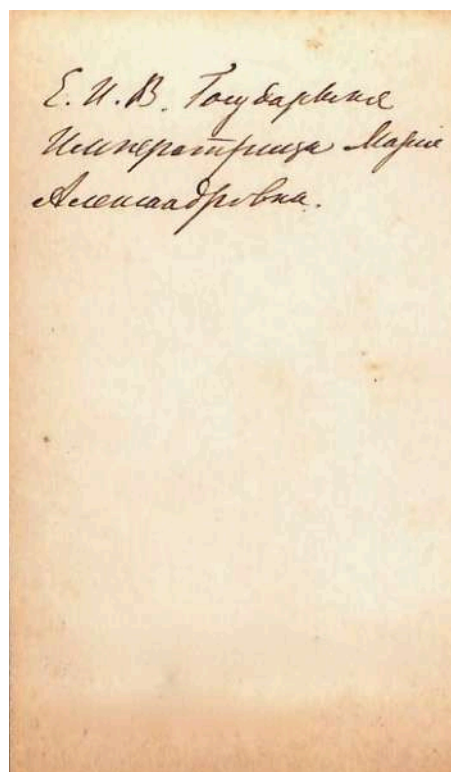 Е. И. В. Государыня
Императрица Мария
Александровна.